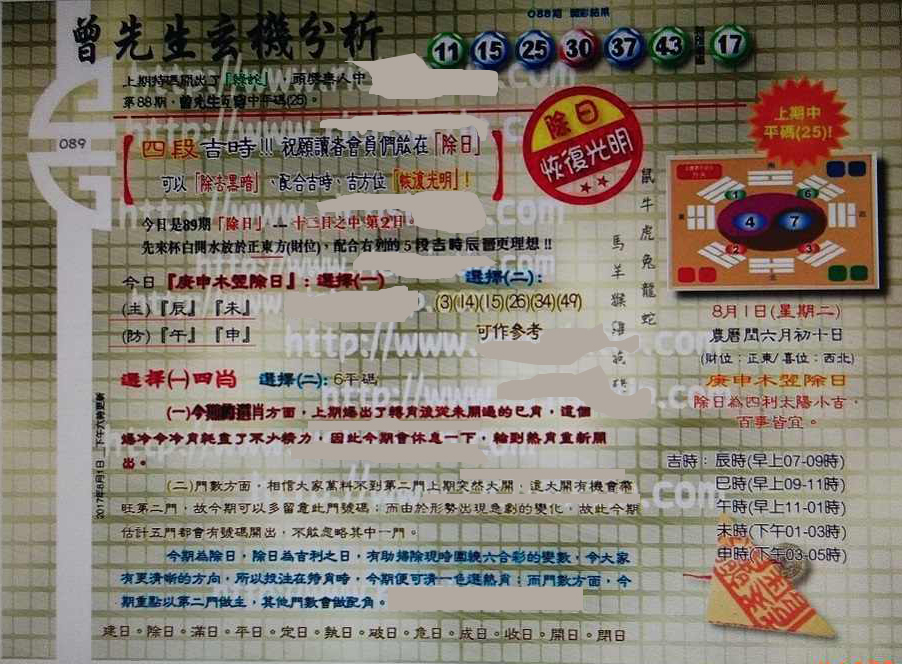 088期 開彩結果
曾先生玄機分析
11 15 25 30 37 43 17
上期特碼開出了
第88期，曾先生 中平碼(25)。
089
四段吉時!!! 祝願讀者會員們能在「除日」
可以「除去黑暗」、配合吉時、吉方位「恢復光明」!
除日
恢復光明
上期中
平碼(25)!
今日是89期「除日」 --- 十二日之中 第2日。
先來杯白開水放於正東方(財位)，配合右列的5段吉時辰 更理想!!
今日『庚申木翌除日』：選擇(一) 選擇(二)：
(主)『辰』『未』 (3)(14)(15)(26)(34)(49)
(防)『午』『申』 可作參考
鼠
牛
虎
兔
龍
蛇
馬
羊
猴
雞
4 7
1 6
2 3
8月1日(星期二)
農曆閏六月初十日
(財位：正東/喜位：西北)
庚申木翌除日
除日為四利太陽小吉，
百事皆宜。
選擇(一)四肖 選擇(二)：6平碼
(一)今期的選肖方面，上期爆出了轉肖後從未開過的巳肖，這個
爆冷令冷肖耗盡了不少精力，因此今期會休息一下，輪到熱肖重新開
出。
(二)門數方面，相信大家萬料不到第二門上期突然大開，這大開有機會帶
旺第二門，故今期可以多留意此門號碼；而由於形勢出現急劇的變化，故此今期
估計五門都會有號碼開出，不能忽略其中一門。
今期為除日，除日為吉利之日，有助掃除現時圍繞六合彩的變數，令大家
有更清晰的方向，所以投注在特肖時，今期便可清一色選熱肖；而門數方面，今
期重點以第二門做主，其他門數會做配角。
吉時：辰時(早上07-09時)
巳時(早上09-11時)
午時(早上11-01時)
未時(下午01-03時)
申時(下午03-05時)
2017年8月1日
建日。除日。滿日。平日。定日。執日。破日。危日。成日。收日。開日。閉日
http://www.
.com